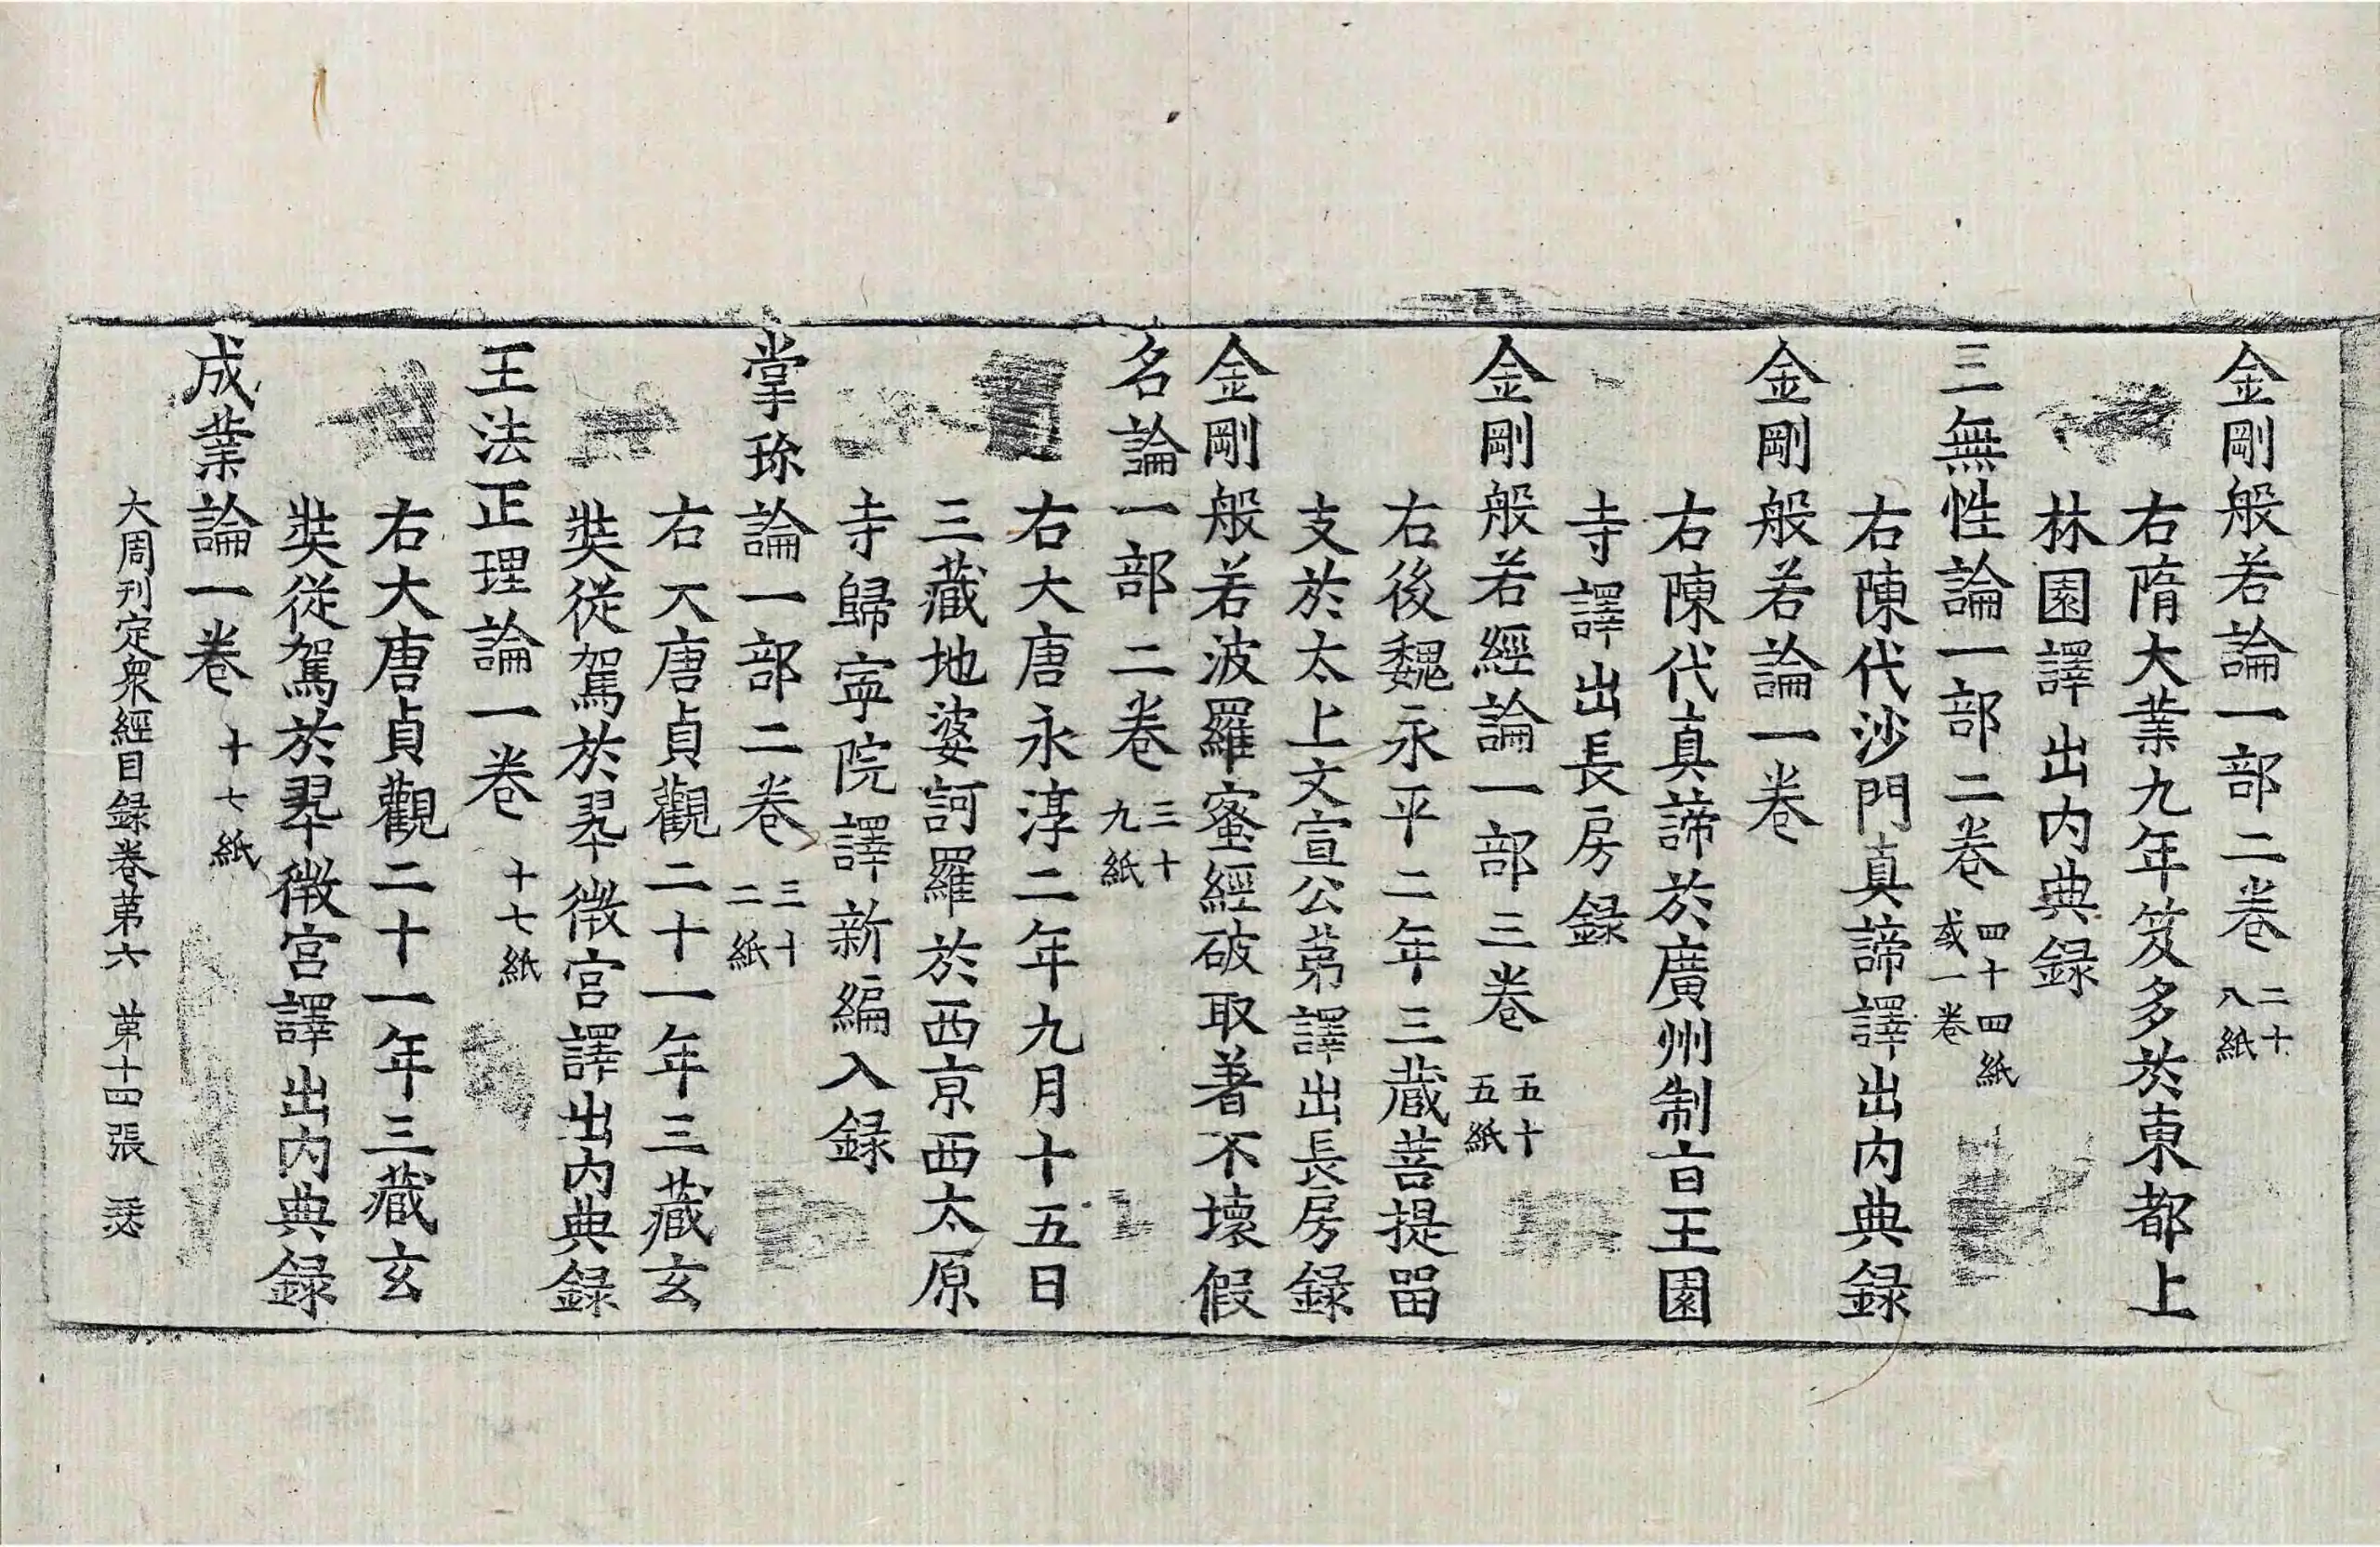 金剛般若論一部二卷 二十八紙
右隋大業九年笈多於東都上
林園譯出内典録
三無性論一部二卷 四十四紙 或一卷
右陳代沙門真諦譯出内典録
金剛般若論一卷
右陳代真諦於廣州制旨王園
寺譯出長房録
金剛般若經論一部三卷 五十五紙
右後魏永平二年三藏菩提留
支於太上文宣公第譯出長房録
金剛般若波羅蜜經破取著不壞假
名論一部二卷 三十九紙
右大唐永淳二年九月十五日
三藏地婆訶羅於西京西太原
寺歸寧院譯新編入録
掌珎論一部二卷 三十二紙
右大唐貞觀二十一年三藏玄
奘從駕於翠微宮譯出内典録
王法正理論一卷 十七紙
右大唐貞觀二十一年三藏玄
奘從駕於翠微宮譯出内典録
成業論一卷 十七紙
大周刊定衆經目録卷第六 第十四張